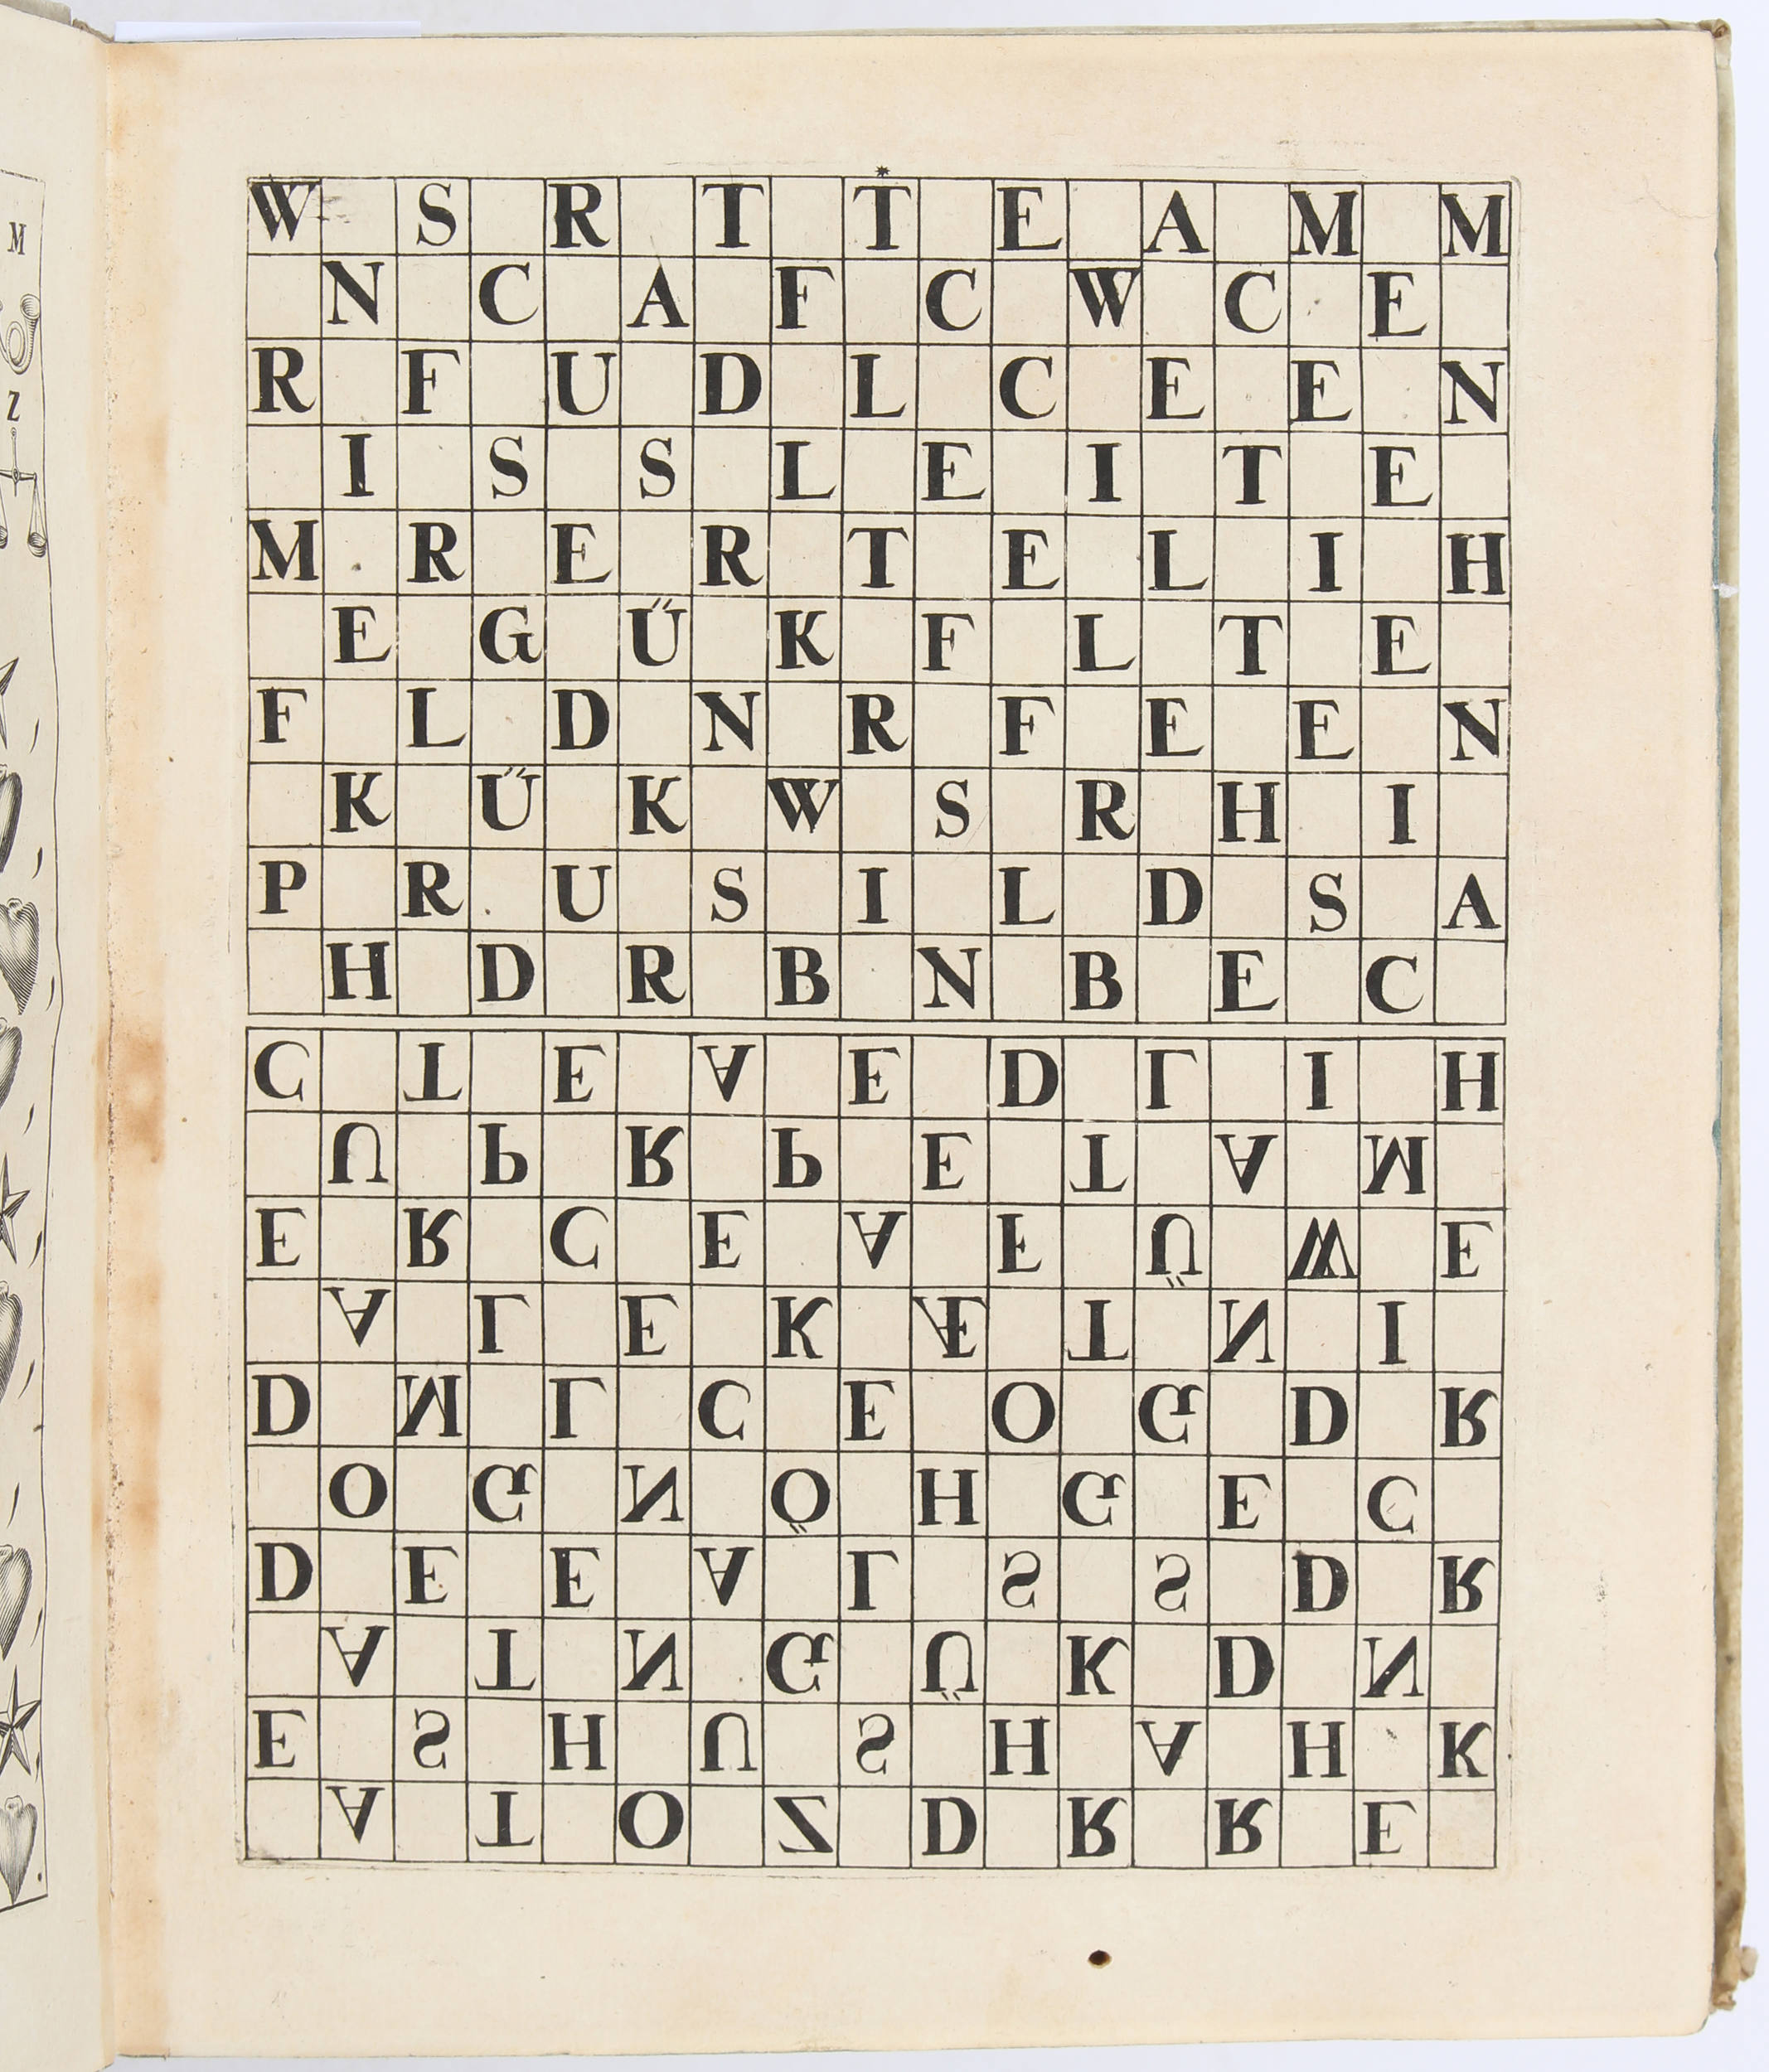 M
Z
W S R T T E A M M
N C A F C W C E
R F U D L C E E N
I S S L E I T E
M R E R T E L I H
E G Ü K F L T E
F L D N R F E E N
K Ü K W S R H I
P R U S I L D S A
H D R B N B E C
C T E A E D L I H
U P R P E T A M
E R C E A F Ü W E
A L E K Æ T N I
D M L C E O G D R
O G N Ö H G E C
D E E A L S S D R
A T N G Ü K D N
E S H U S H A H K
A T O Z D R R E